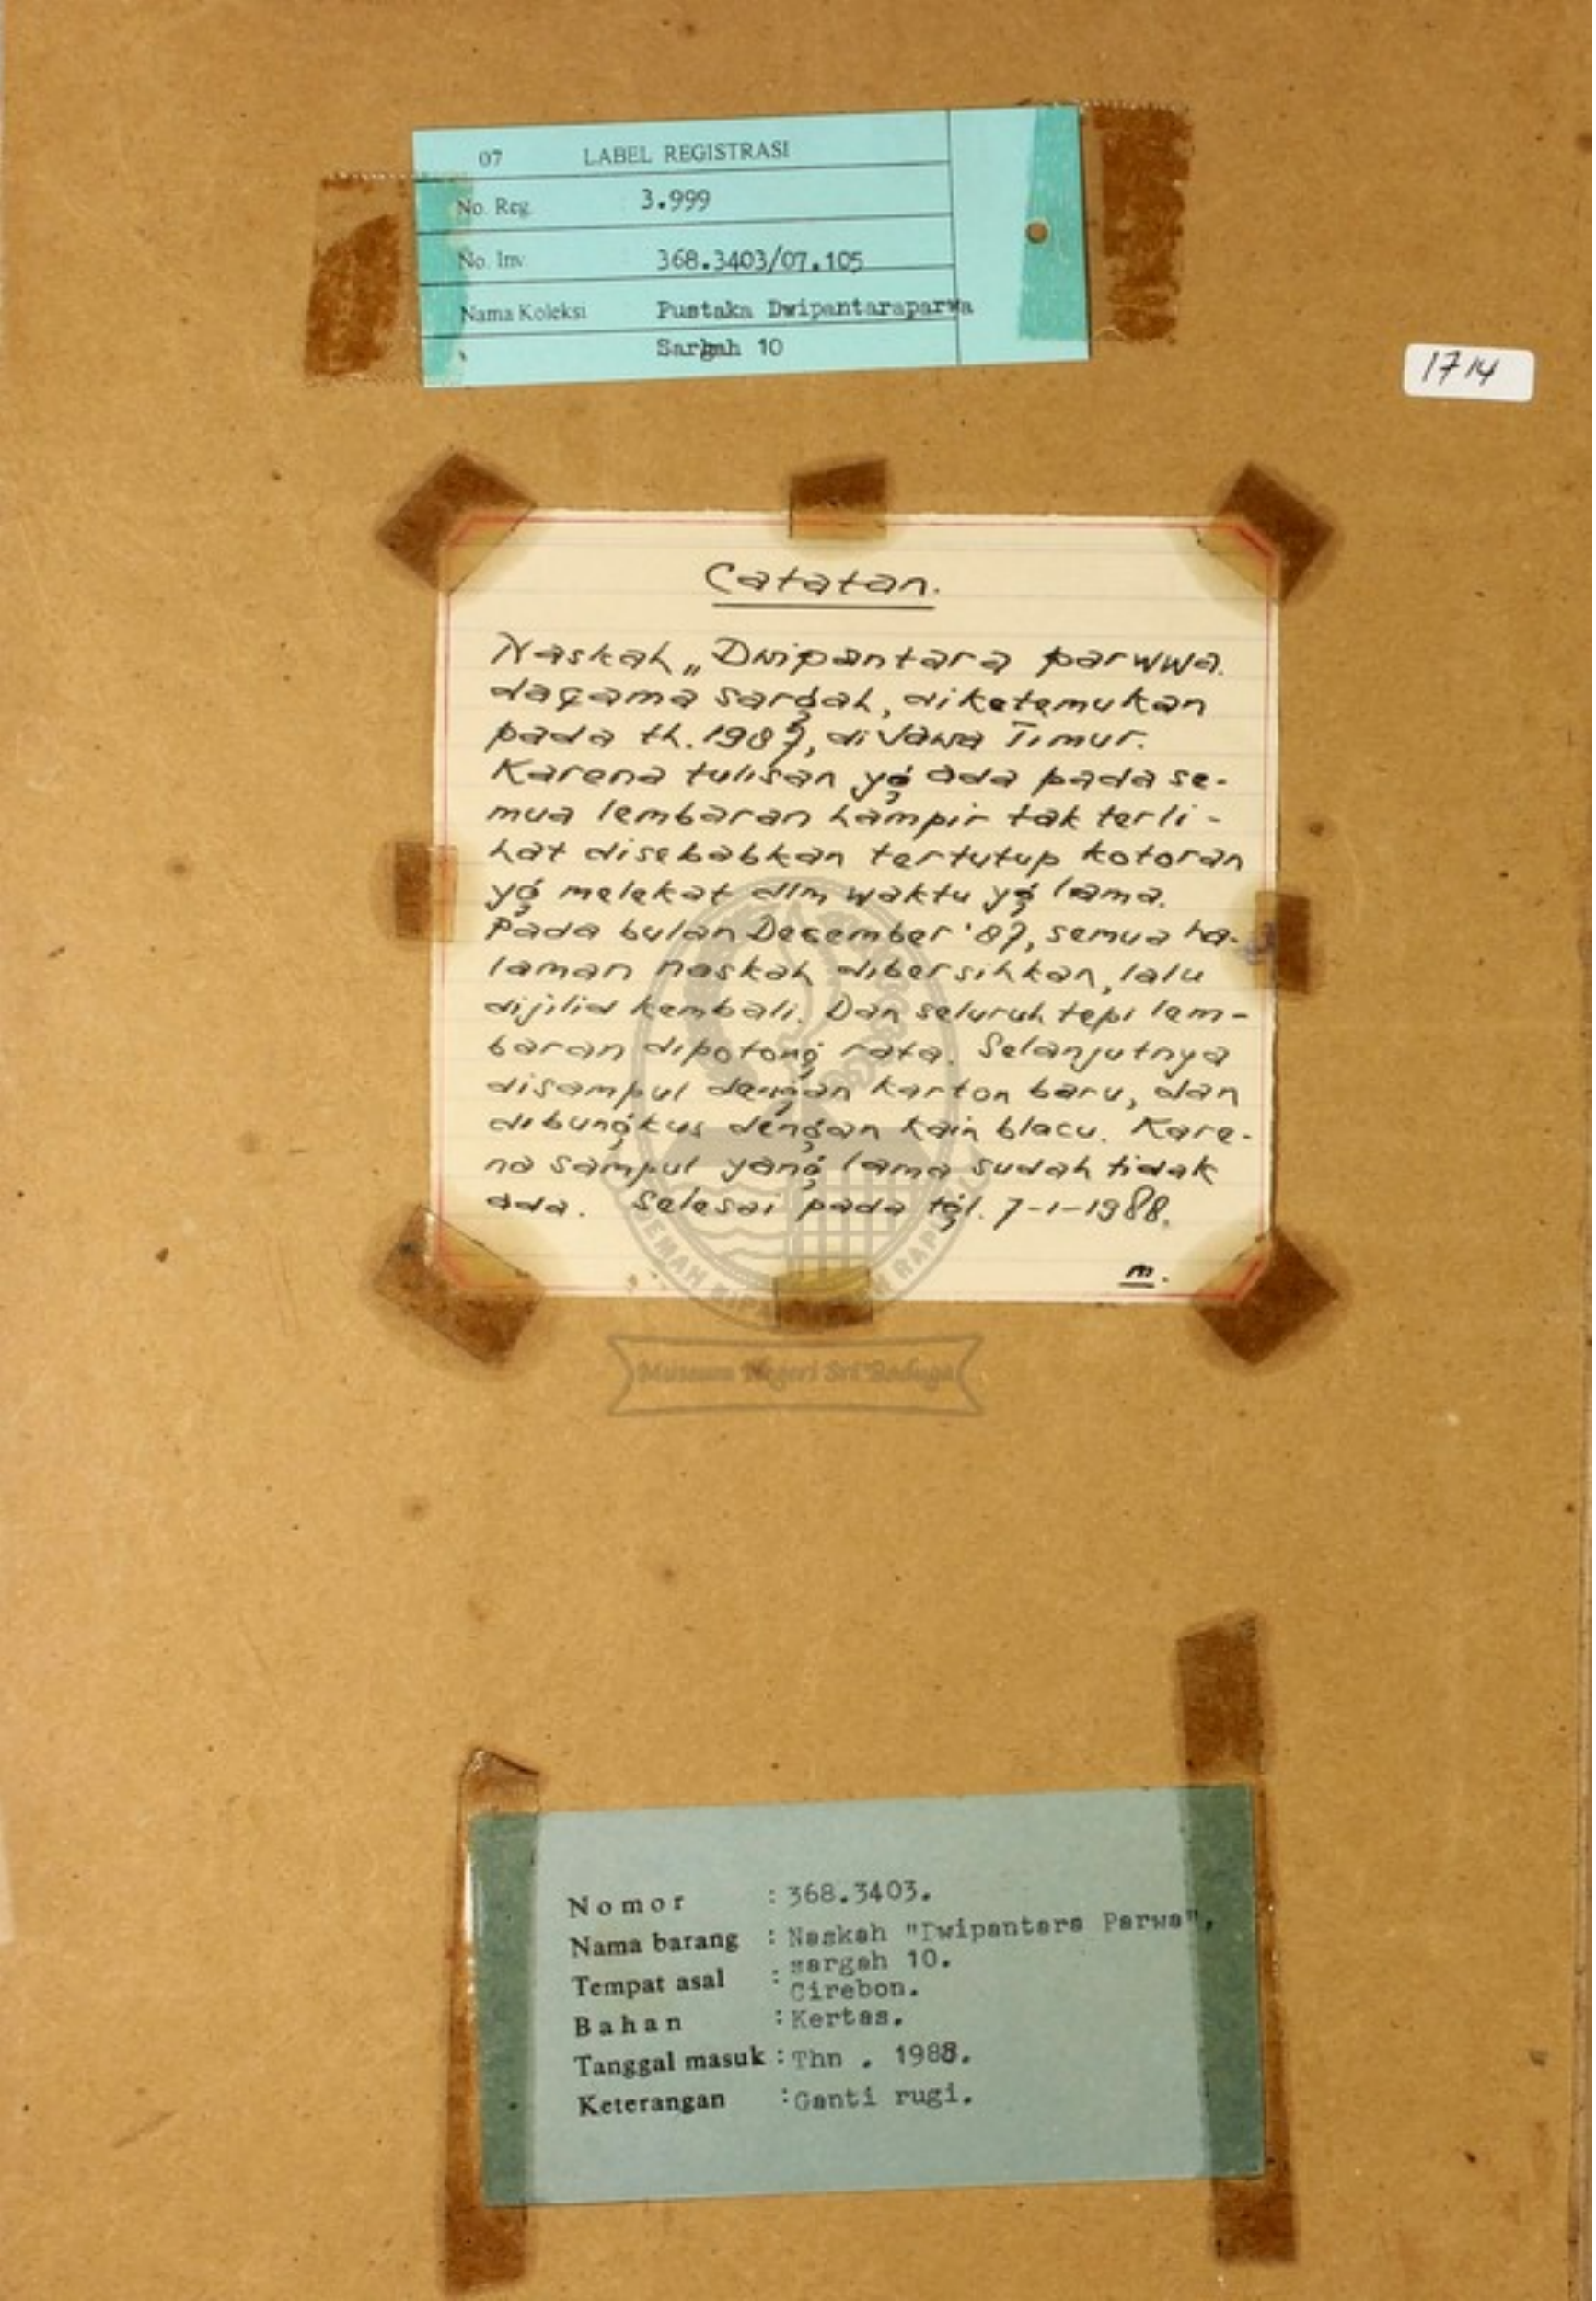 07 LABEL REGISTRASI
No. Reg. 3.999
No. Inv. 368.3403/07.105
Nama Koleksi Pustaka Dwipantaraparwa
Sargah 10
1714
Catatan.
Naskah „Dwipantara parwwa.
daçama sargah, diketemukan
pada th. 1987, di Jawa Timur.
Karena tulisan yg ada pada se-
mua lembaran hampir tak terli-
hat disebabkan tertutup kotoran
yg melekat dlm waktu yg lama.
Pada bulan December '87, semua ha-
laman naskah dibersihkan, lalu
dijilid kembali. Dan seluruh tepi lem-
baran dipotong rata. Selanjutnya
disampul dengan karton baru, dan
dibungkus dengan kain blacu. Kare-
na sampul yang lama sudah tidak
ada. Selesai pada tgl. 7-1-1988.
m.
Museum Negeri Sri Baduga
Nomor : 368.3403.
Nama barang : Naskah "Dwipantara Parwa",
sargah 10.
Tempat asal : Cirebon.
Bahan : Kertas.
Tanggal masuk : Thn . 1988.
Keterangan : Ganti rugi.